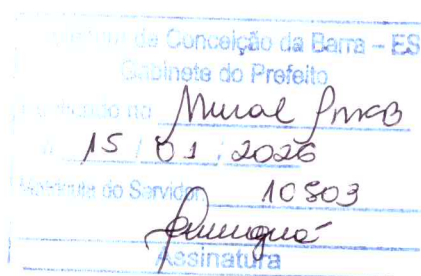 de Conceição da Barra – ES
Gabinete do Prefeito
Publicado no Mural PMCB
15 / 01 / 2026
Matrícula do Servidor: 10803
Assinatura